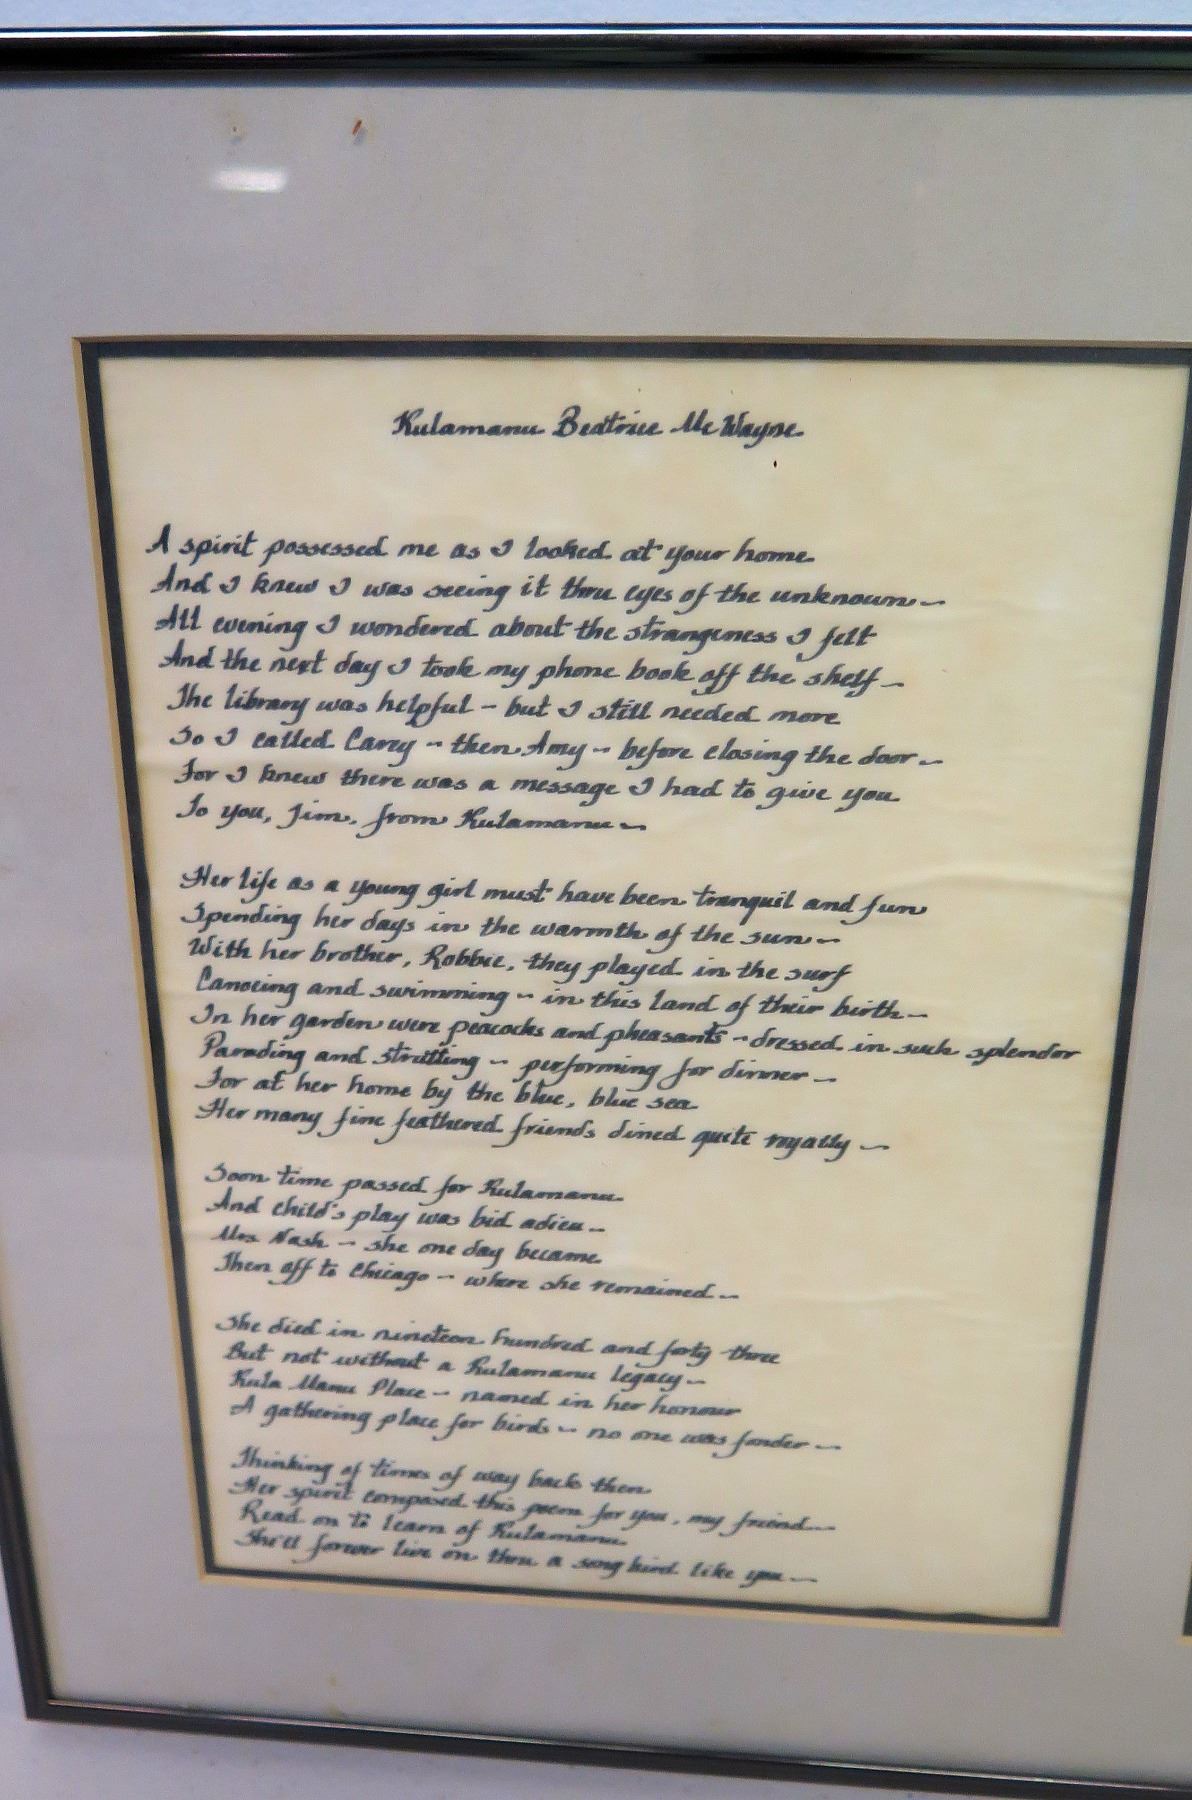 Kulamanu Beatrice Mc Wayne
A spirit possessed me as I looked at your home
And I knew I was seeing it thru eyes of the unknown ~
All evening I wondered about the strangeness I felt
And the next day I took my phone book off the shelf ~
The library was helpful ~ but I still needed more
So I called Carey ~ then Amy ~ before closing the door ~
For I knew there was a message I had to give you
To you, Jim, from Kulamanu ~
Her life as a young girl must have been tranquil and fun
Spending her days in the warmth of the sun ~
With her brother, Robbie, they played in the surf
Canoeing and swimming ~ in this land of their birth ~
In her garden were peacocks and pheasants ~ dressed in such splendor
Parading and strutting ~ performing for dinner ~
For at her home by the blue, blue sea
Her many fine feathered friends dined quite royally ~
Soon time passed for Kulamanu
And child's play was bid adieu ~
Mrs Nash ~ she one day became
Then off to Chicago ~ where she remained ~
She died in nineteen hundred and forty three
But not without a Kulamanu legacy ~
Kula Manu Place ~ named in her honour
A gathering place for birds ~ no one was fonder ~
Thinking of times of way back then
Her spirit composed this poem for you, my friend ~
Read on to learn of Kulamanu
She'll forever live on thru a song bird like you ~